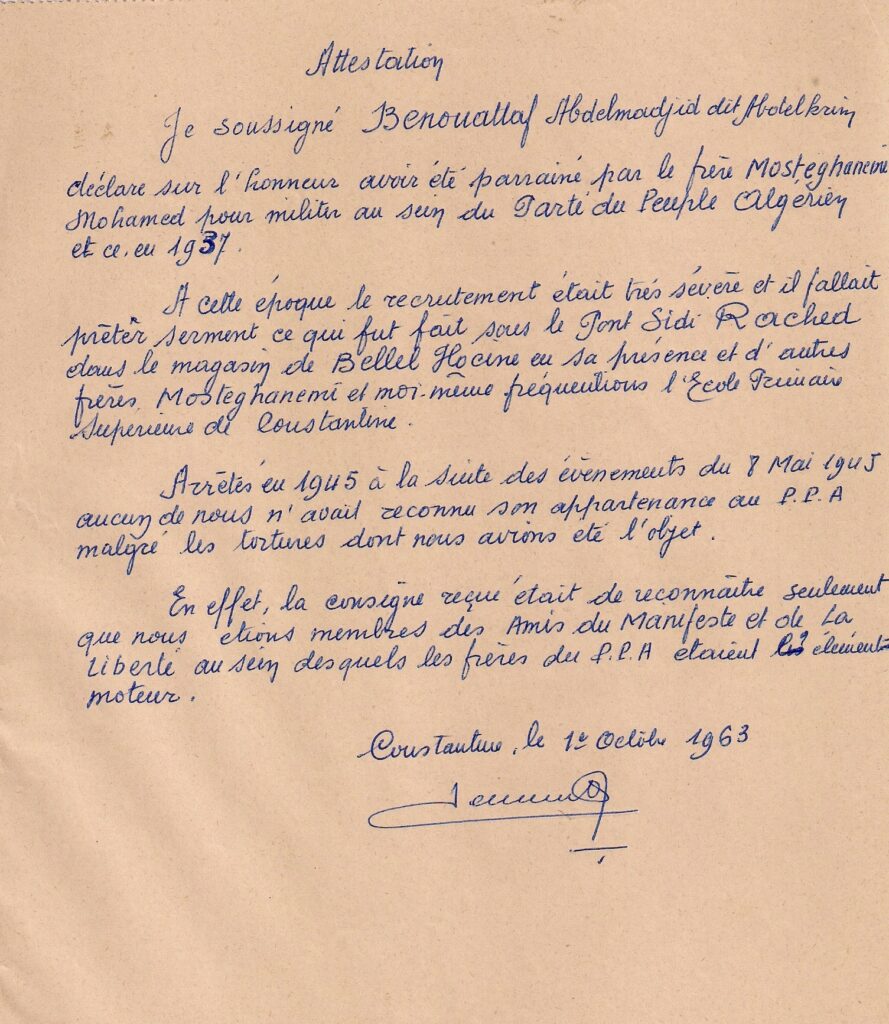 Attestation
Je soussigné Benouattaf Abdelmadjid dit Abdelkrim
déclare sur l'honneur avoir été parrainé par le frère Mosteghanemi
Mohamed pour militer au sein du Parti du Peuple Algérien
et ce, en 1937.
A cette époque le recrutement était très sévère et il fallait
prêter serment ce qui fut fait sous le Pont Sidi Rached
dans le magasin de Bellel Hocine en sa présence et d'autres
frères, Mosteghanemi et moi-même fréquentions l'Ecole Primaire
Superieure de Constantine.
Arrêtés en 1945 à la suite des évènements du 8 Mai 1945
aucun de nous n'avait reconnu son appartenance au P.P.A
malgré les tortures dont nous avions été l'objet.
En effet, la consigne reçue était de reconnaître seulement
que nous etions membres des Amis du Manifeste et de La
Liberté au sein desquels les frères du P.P.A etaient les élements
moteur.
Constantine, le 1er Octobre 1963